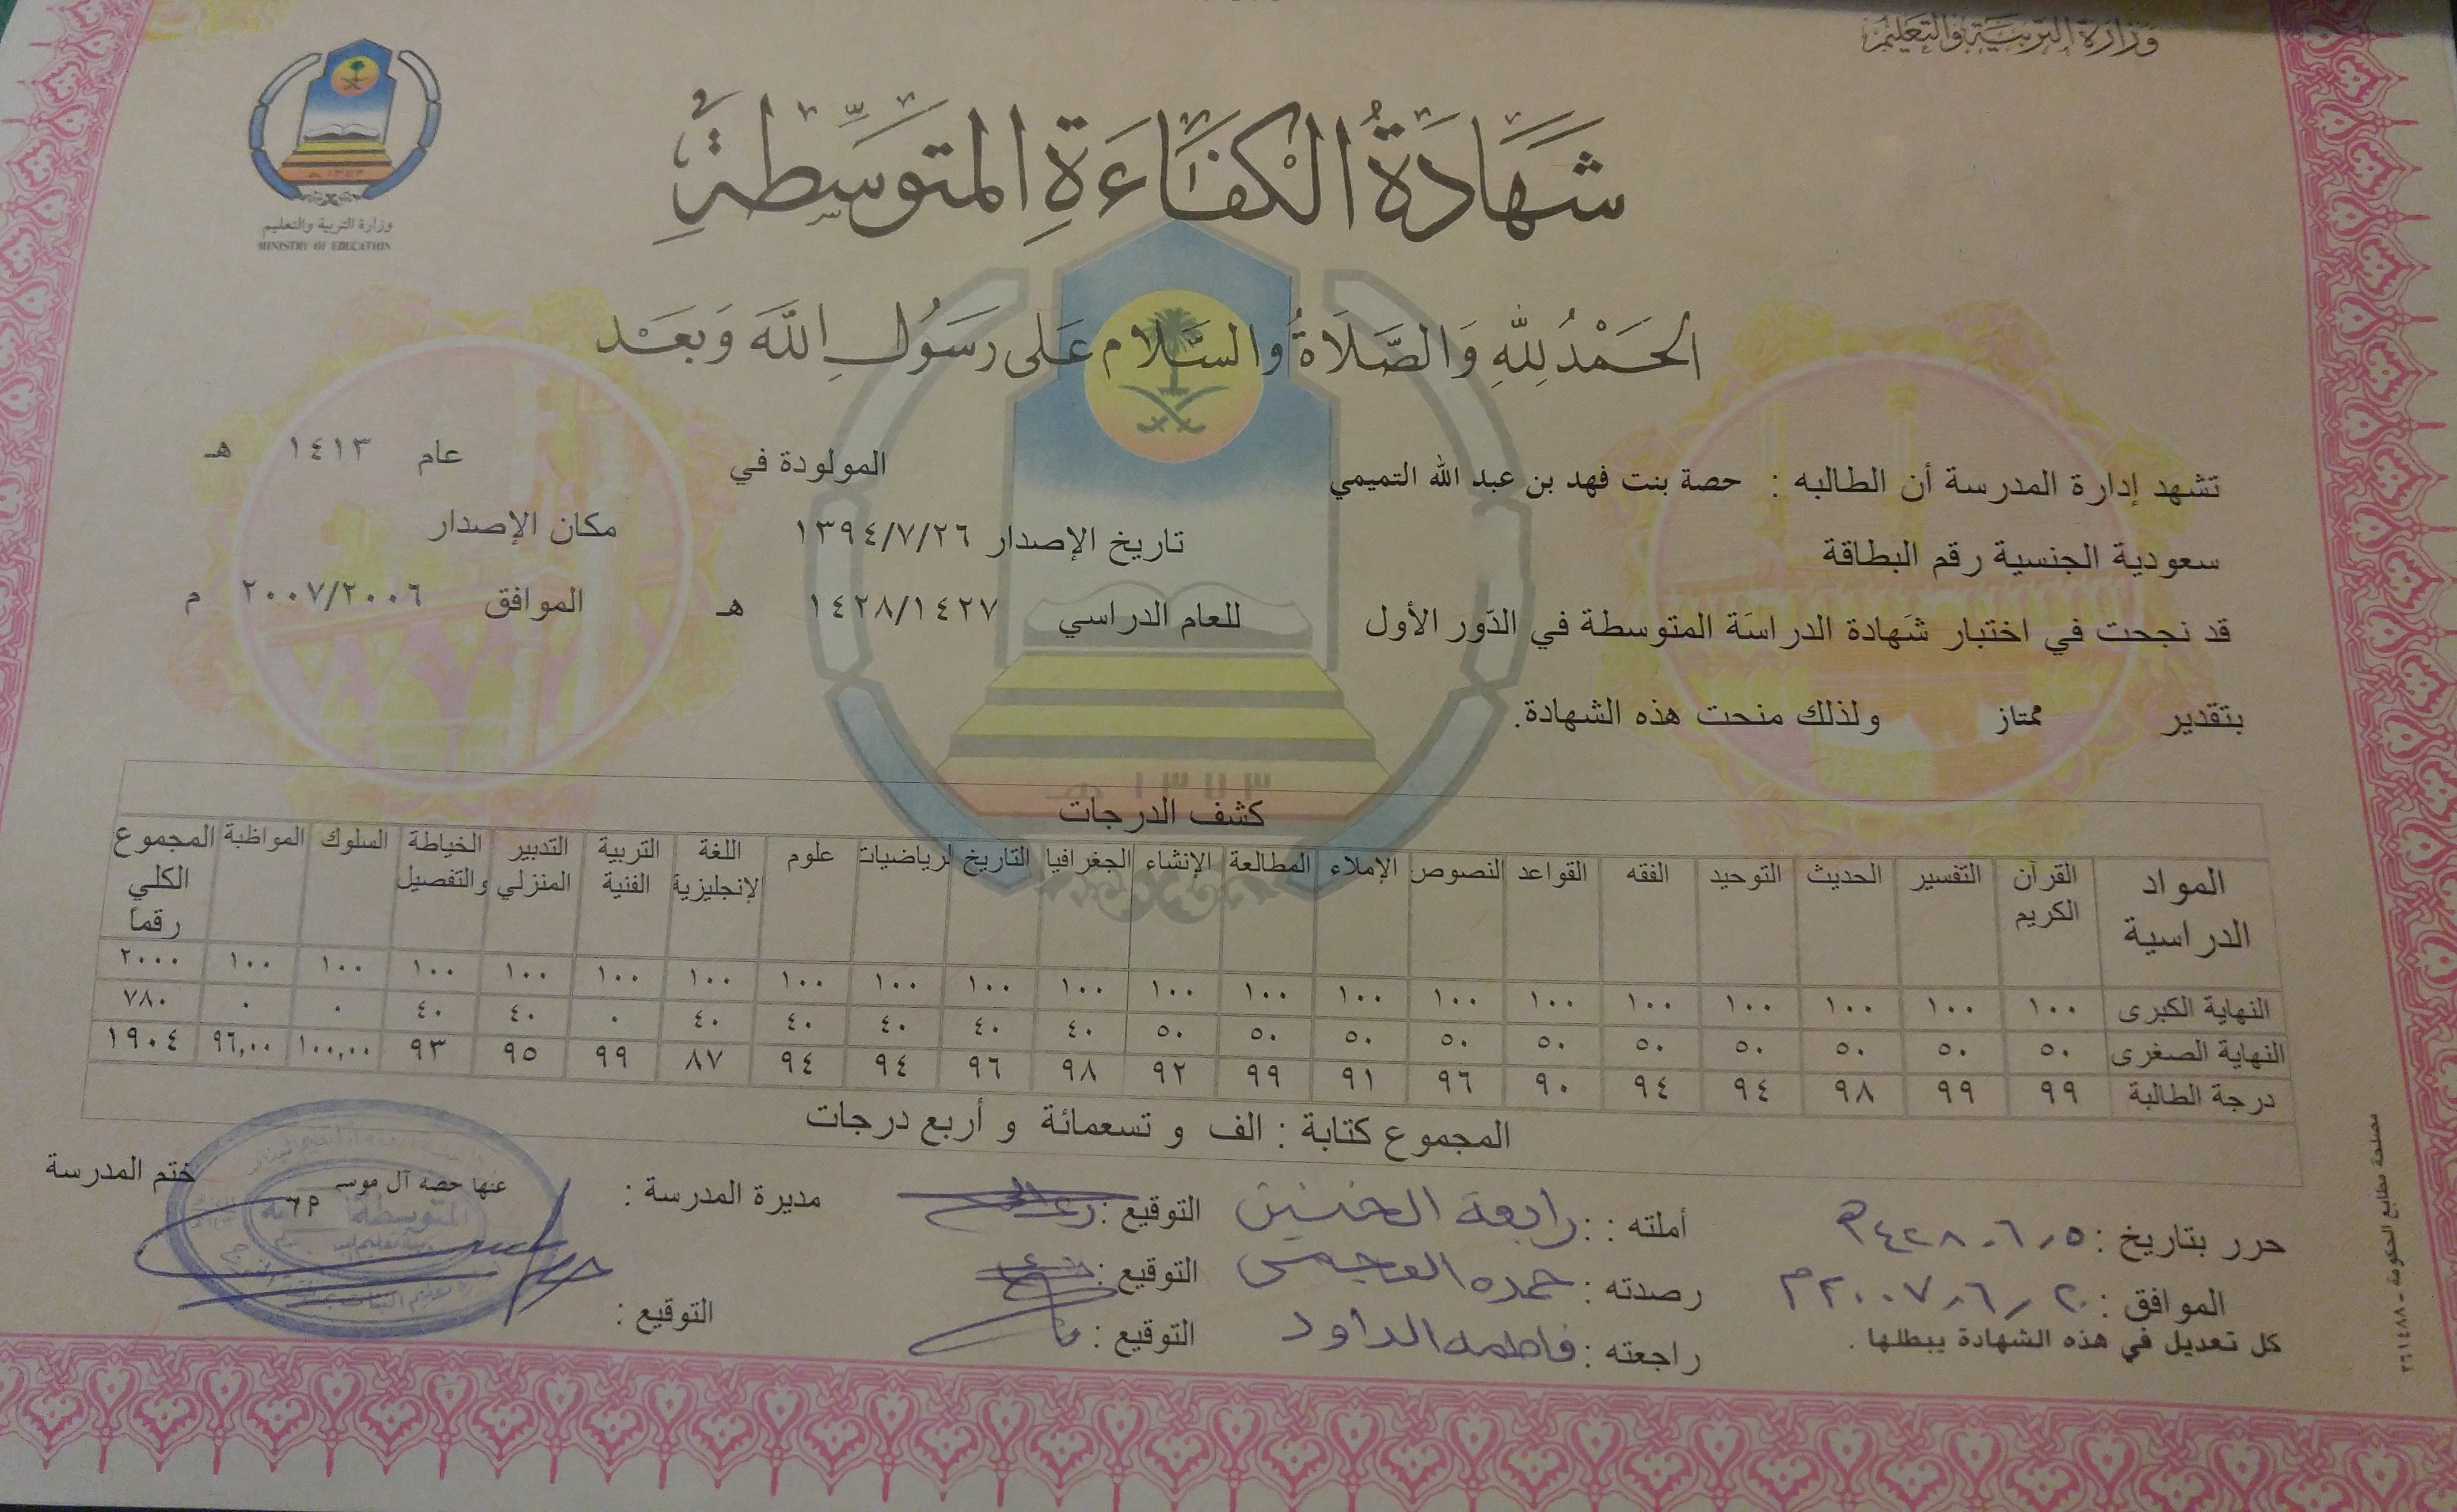 وزارة التربية والتعليم
وزارة التربية والتعليم
MINISTRY OF EDUCATION
شَهَادَةُ الكَفَاءَةِ المتَوَسِّطَةِ
الحَمْدُ لِلّهِ وَالصَّلَاةُ وَالسَّلَام عَلى رَسُولِ اللّه وَبَعَد
تشهد إدارة المدرسة أن الطالبه : حصة بنت فهد بن عبد الله التميمي المولودة في عام ١٤١٣ هـ
سعودية الجنسية رقم البطاقة تاريخ الإصدار ١٣٩٤/٧/٢٦ مكان الإصدار
قد نجحت في اختبار شَهادة الدراسَة المتوسطة في الدّور الأول للعام الدراسي ١٤٢٨/١٤٢٧ هـ الموافق ٢٠٠٧/٢٠٠٦ م
بتقدير ممتاز ولذلك منحت هذه الشهادة.
١٣٧٣ هـ
كشف الدرجات
المواد الدراسية القرآن الكريم التفسير الحديث التوحيد الفقه القواعد النصوص الإملاء المطالعة الإنشاء الجغرافيا التاريخ لرياضيات علوم اللغة لإنجليزية التربية الفنية التدبير المنزلي الخياطة والتفصيل السلوك المواظبة المجموع الكلي رقماً
النهاية الكبرى ١٠٠ ١٠٠ ١٠٠ ١٠٠ ١٠٠ ١٠٠ ١٠٠ ١٠٠ ١٠٠ ١٠٠ ١٠٠ ١٠٠ ١٠٠ ١٠٠ ١٠٠ ١٠٠ ١٠٠ ١٠٠ ١٠٠ ١٠٠ ٢٠٠٠
النهاية الصغرى ٥٠ ٥٠ ٥٠ ٥٠ ٥٠ ٥٠ ٥٠ ٥٠ ٥٠ ٥٠ ٤٠ ٤٠ ٤٠ ٤٠ ٤٠ ٠ ٤٠ ٤٠ ٠ ٠ ٧٨٠
درجة الطالبة ٩٩ ٩٩ ٩٨ ٩٤ ٩٤ ٩٠ ٩٦ ٩١ ٩٩ ٩٢ ٩٨ ٩٦ ٩٤ ٩٤ ٨٧ ٩٩ ٩٥ ٩٣ ١٠٠,٠٠ ٩٦,٠٠ ١٩٠٤
المجموع كتابة : الف و تسعمائة و أربع درجات
حرر بتاريخ : ٥/٦/١٤٢٨هـ أملته : : رابعة الحنيني التوقيع : مديرة المدرسة : عنها حصه آل موسه ختم المدرسة
الموافق : ٢٠/٦/٢٠٠٧م رصدته : حمده العجمي التوقيع : التوقيع :
كل تعديل في هذه الشهادة يبطلها . راجعته : فاطمه الداود التوقيع :
مصلحة مطابع الحكومة - ٣٦١٤٨٨